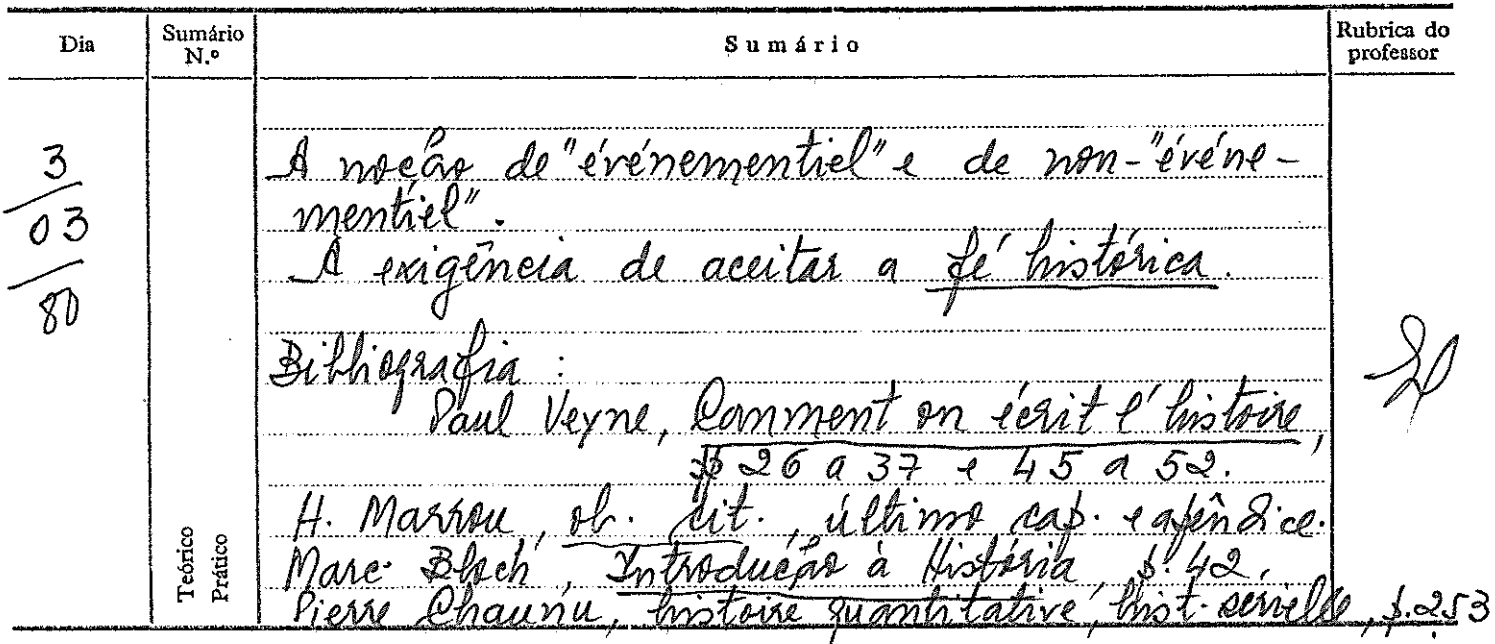 Dia Sumário N.º Sumário Rubrica do professor
3/03/80
A noção de "événementiel" e de non-"événe-
mentiel".
A exigência de aceitar a fé histórica.
Bibliografia :
Paul Veyne, Comment on écrit l'histoire,
pp 26 a 37 e 45 a 52.
H. Marrou, ob. cit., último cap. e apêndice.
Marc Bloch, Introdução à História, p. 42,
Pierre Chaunu, histoire quantitative, hist. serielle, p. 253
Teórico
Prático